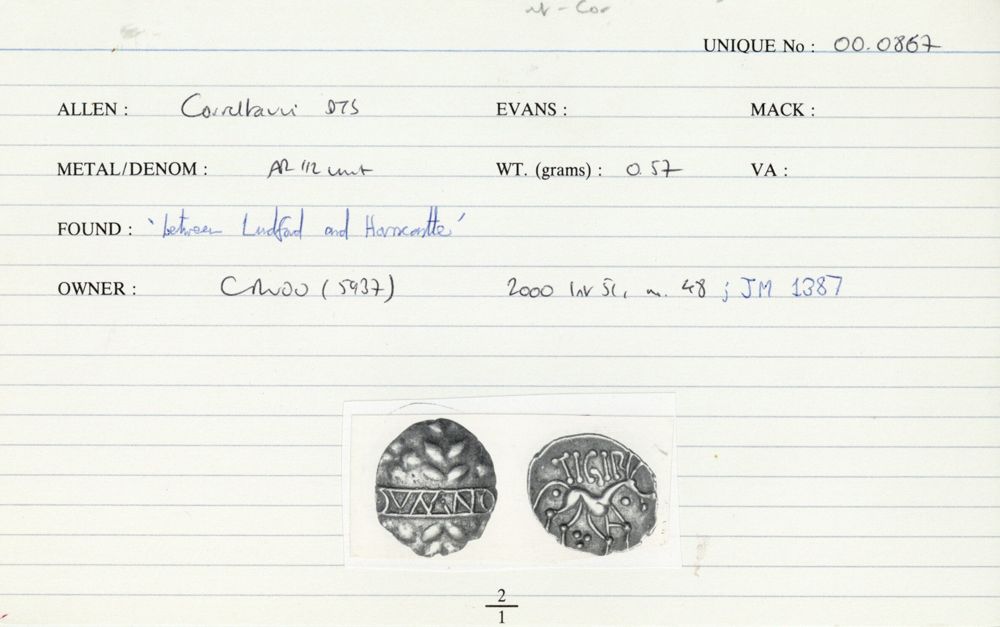 UNIQUE No : 00.0867
ALLEN : Corieltauvi DTS EVANS : MACK :
METAL/DENOM : AR 1/2 unit WT. (grams) : 0.57 VA :
FOUND : 'between Ludford and Horncastle'
OWNER : (5937) 2000 48 ; JM 1387
TIGIR
2
1